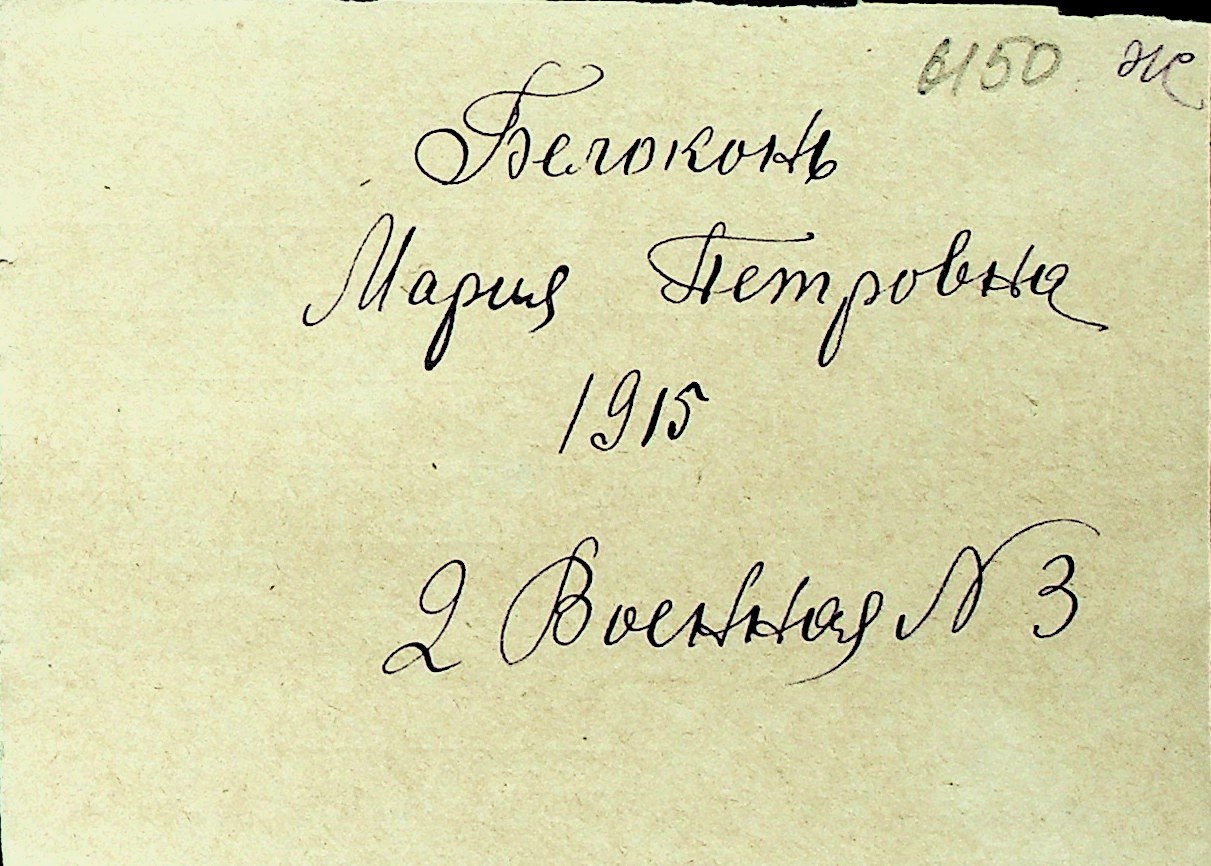 6150 ж
Белоконь
Мария Петровна
1915
2 Военная N 3